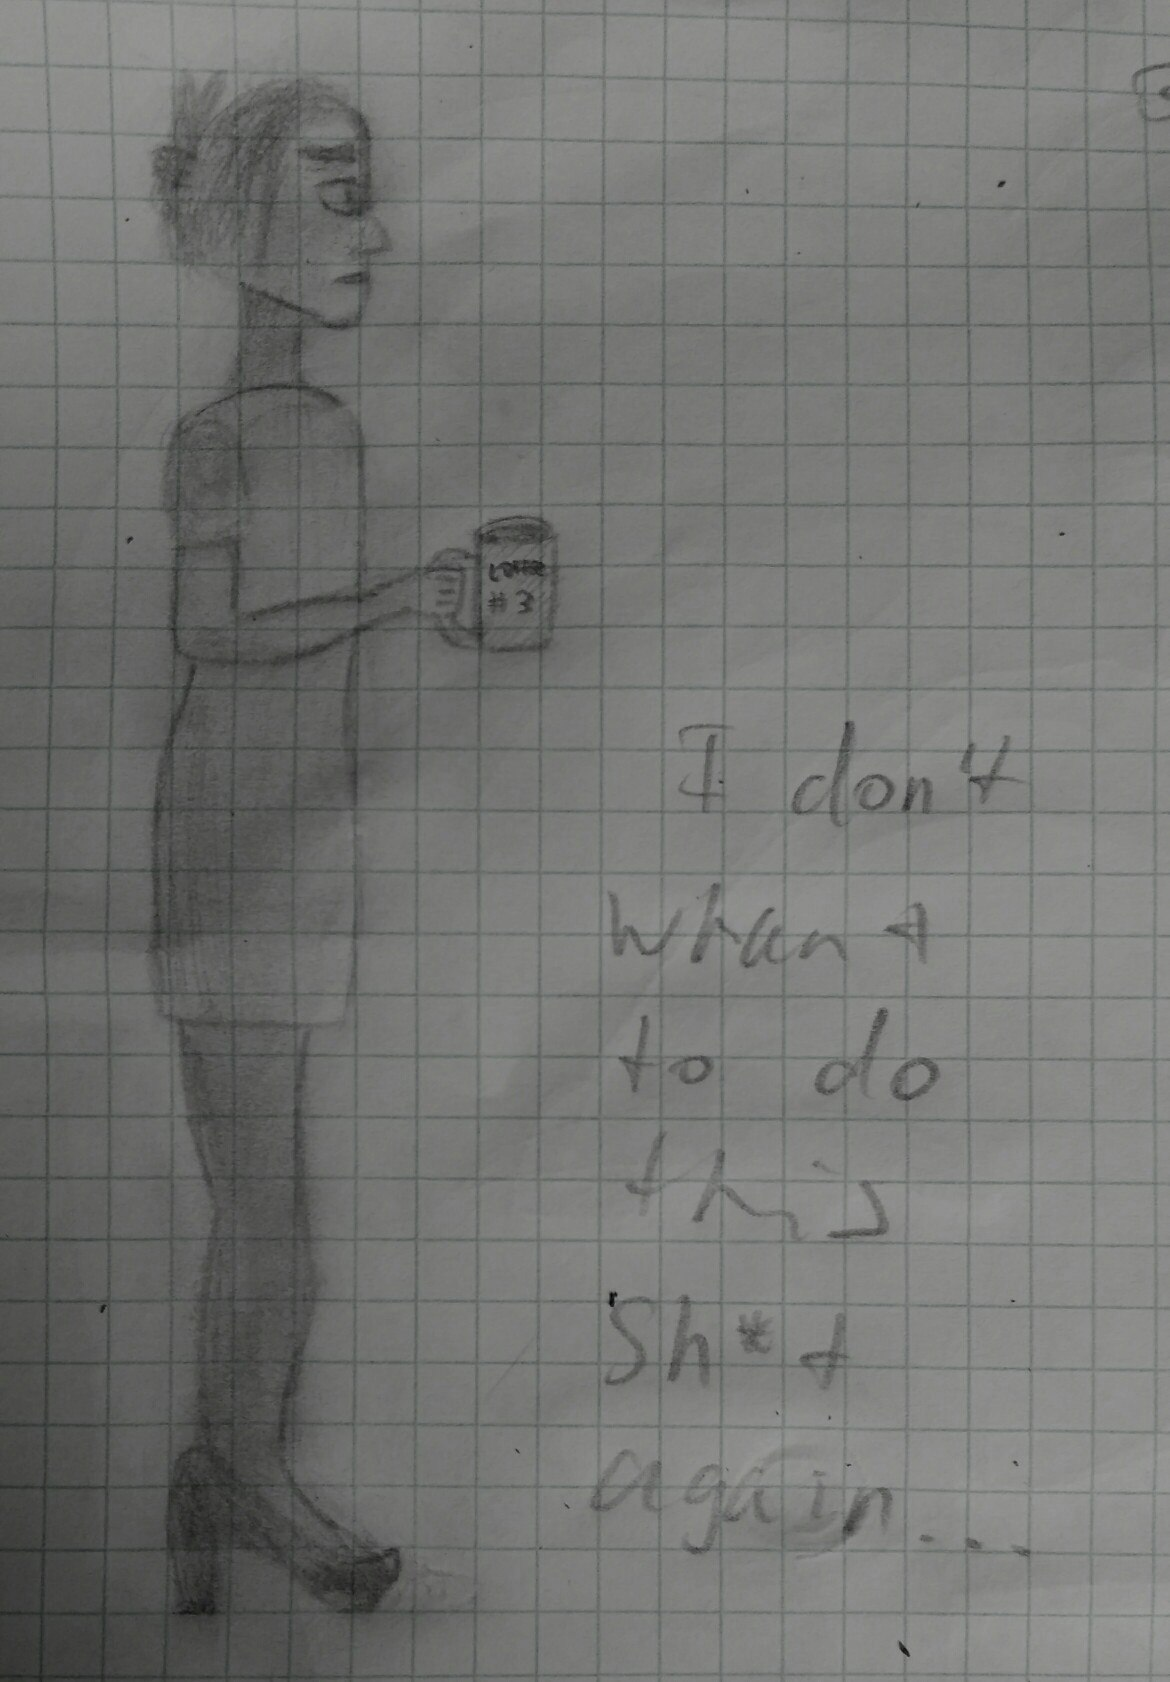 #3
I don't
whant
to do
this
Sh*t
again...